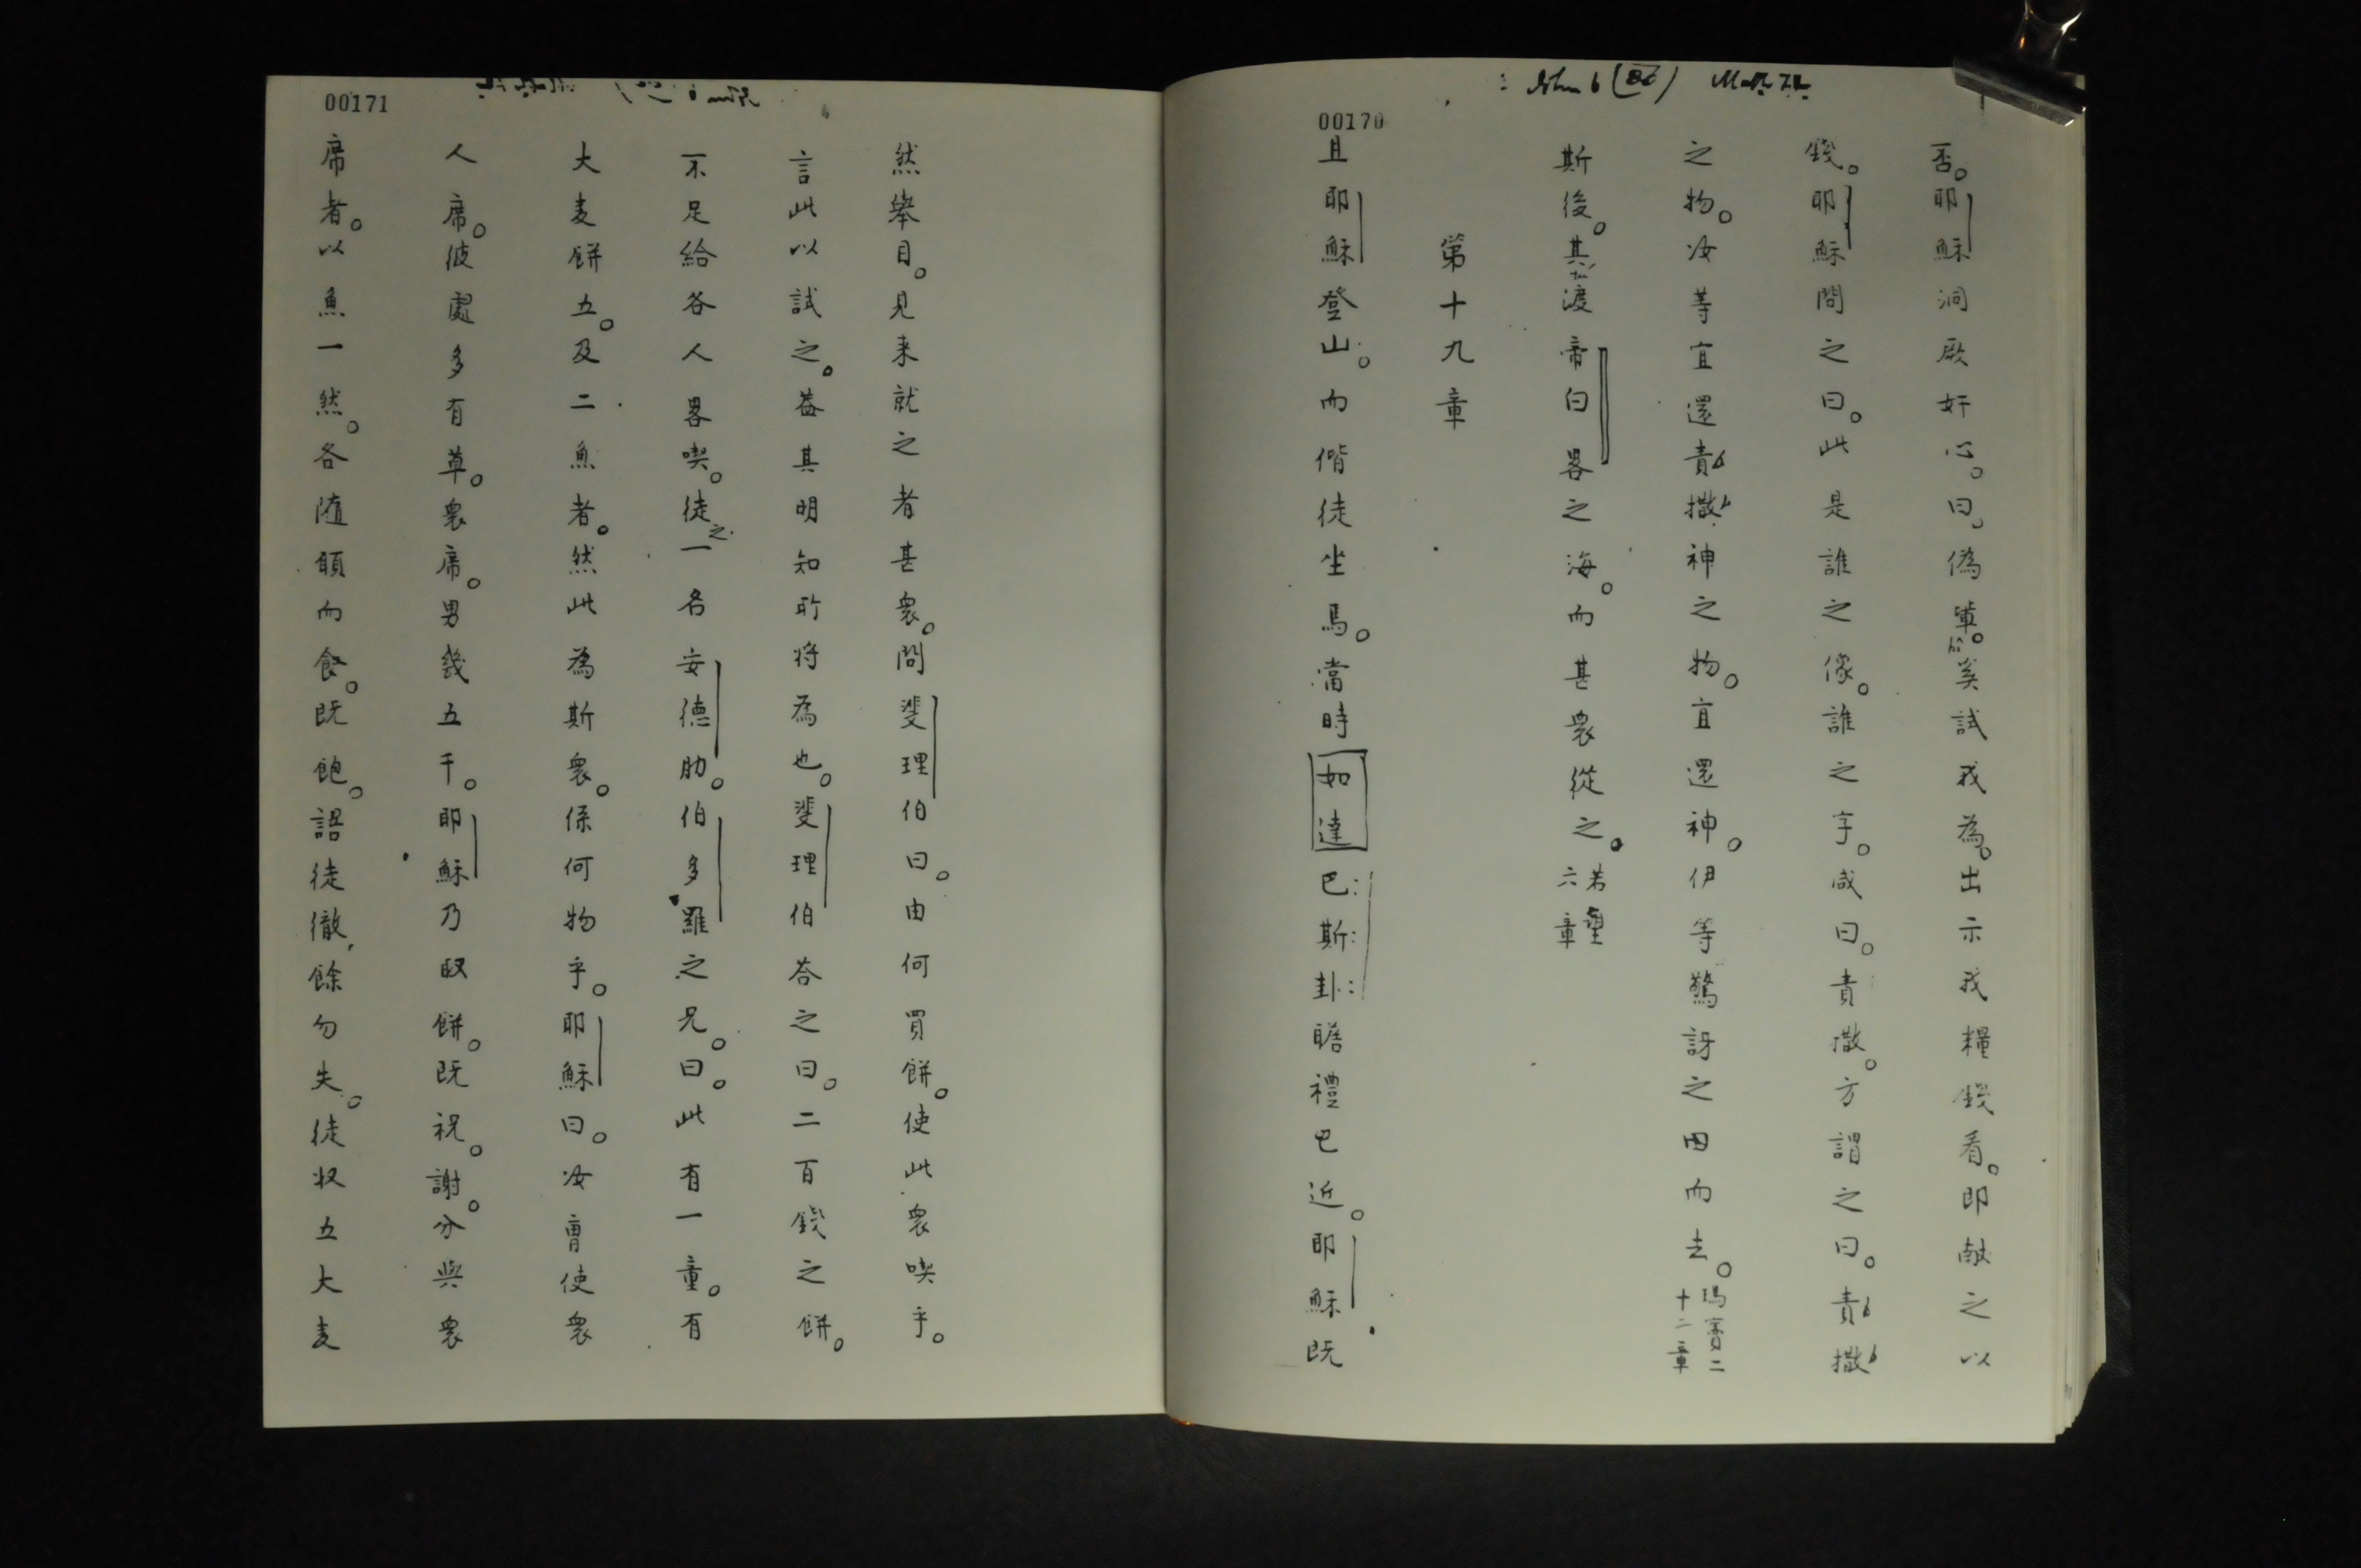 John 6 (86) Matth 22.
00170
否。耶穌洞厥奸心。曰。偽軰。奚試我為。出示我糧錢看。即献之以
錢。耶穌問之曰。此是誰之像。誰之字。咸曰。責撒。方謂之曰。責撒
之物。汝等宜還責撒。神之物。宜還神。伊等驚訝之由而去。瑪竇二十二章
斯後。其渡帝白畧之海。而甚衆從之。若望六章
第十九章
且耶穌登山。而偕徒坐焉。當時如達巴斯卦瞻禮已近。耶穌既
00171
然舉目。見来就之者甚衆。問斐理伯曰。由何買餅。使此衆喫乎。
言此以試之。蓋其明知所将為也。斐理伯荅之曰。二百錢之餅。
不足給各人畧喫。徒之一名安德肋。伯多羅之兄。曰。此有一童。有
大麦餅五。及二魚者。然此為斯衆。係何物乎。耶穌曰。汝曹使衆
人席。彼處多有草。衆席。男幾五千。耶穌乃取餅。既祝。謝。分與衆
席者。以魚一然。各随願而食。既飽。語徒徹餘勿失。徒收五大麦